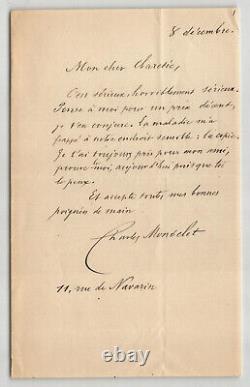 8 décembre.
Mon cher Charetié,
C'est sérieux, horriblement sérieux.
Pense à moi pour un prix décent,
je t'en conjure. La maladie m'a
frappé à notre endroit sensible : la copie.
Je t'ai toujours pris pour mon ami,
prouve-moi, aujourd'hui puisque tu
le peux.
Et accepte toutes mes bonnes
poignées de main
Charles Monselet
11, rue de Navarin